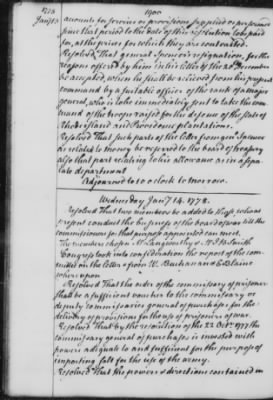 1778
1900
Jany 13
accounts for services or provisions supplied or performed
since that period to the date of this resolution to be paid
for, at the prices for which they are contracted.
Resolved That general Spencer's resignation, for the
reasons offered by him in his letter of the 20 December
be accepted, when he shall be relieved from his present
command by a suitable officer of the rank of a major
general, who is to be immediately sent to take the com
mand of the troops raised for the defence of the state of
Rhodeisland and Providence plantations.
Resolved That such parts of the letter from gen Spencer
as related to money be referred to the board of treasury
also that part relating to his allowance as in a sepa
rate department
Adjourned to 10 o Clock to morrow.
Wednesday Jany 14. 1778.
Resolved That two members be added to those, whom
present conduct the business of the board of war till the
commissioners for that purpose appointed can meet.
The members chosen Mr Langworthy & Mr J B Smith
Congress took into consideration the report of the com
mittee on the letters from W. Buchanan & E Blaine
whereupon
Resolved That the order of the commissary of prisoners
shall be a sufficient voucher to the commissary or
deputy commissaries general of purchases for the
delivery of provisions for the use of prisoners of war.
Resolved That by the resolution of the 22 Octr 1777 the
commissary general of purchases is invested with
powers adequate to and sufficient for the purpose of
importing salt for the use of the army.
Resolved That the powers & directions contained in